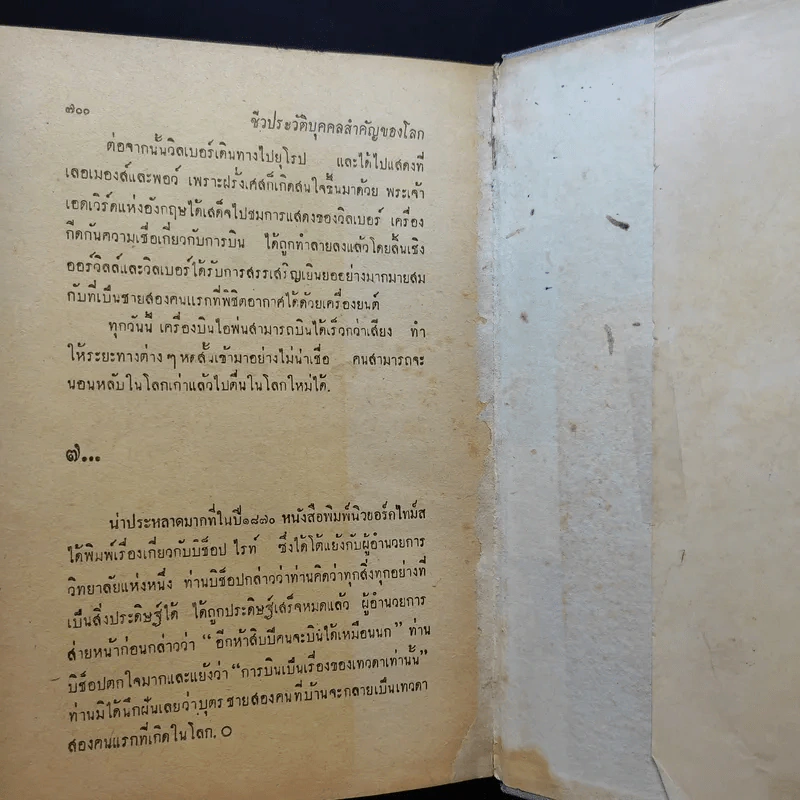 ๗๐๐
ชีวประวัติบุคคลสำคัญของโลก
ต่อจากนั้นวิลเบอร์เดินทางไปยุโรป และได้ไปแสดงที่
เลอเมองส์และพอว์ เพราะฝรั่งเศสก็เกิดสนใจขึ้นมาด้วย พระเจ้า
เอดเวิร์ดแห่งอังกฤษได้เสด็จไปชมการแสดงของวิลเบอร์ เครื่อง
กีดกันความเชื่อเกี่ยวกับการบิน ได้ถูกทำลายลงแล้วโดยสิ้นเชิง
ออร์วิลล์และวิลเบอร์ได้รับการสรรเสริญเยินยออย่างมากมายสม
กับที่เป็นชายสองคนแรกที่พิชิตอากาศได้ด้วยเครื่องยนต์
ทุกวันนี้ เครื่องบินไอพ่นสามารถบินได้เร็วกว่าเสียง ทำ
ให้ระยะทางต่าง ๆ หดสั้นเข้ามาอย่างไม่น่าเชื่อ คนสามารถจะ
นอนหลับในโลกเก่าแล้วไปตื่นในโลกใหม่ได้.
๗...
น่าประหลาดมากที่ในปี๑๘๗๐ หนังสือพิมพ์นิวยอร์กไทม์ส
ได้พิมพ์เรื่องเกี่ยวกับบิช็อป ไรท์ ซึ่งได้โต้แย้งกับผู้อำนวยการ
วิทยาลัยแห่งหนึ่ง ท่านบิช็อปกล่าวว่าท่านคิดว่าทุกสิ่งทุกอย่างที่
เป็นสิ่งประดิษฐ์ได้ ได้ถูกประดิษฐ์เสร็จหมดแล้ว ผู้อำนวยการ
ส่ายหน้าก่อนกล่าวว่า “อีกห้าสิบปีคนจะบินได้เหมือนนก” ท่าน
บิช็อปตกใจมากและแย้งว่า “การบินเป็นเรื่องของเทวดาเท่านั้น”
ท่านมิได้นึกฝันเลยว่าบุตรชายสองคนที่บ้านจะกลายเป็นเทวดา
สองคนแรกที่เกิดในโลก. ○